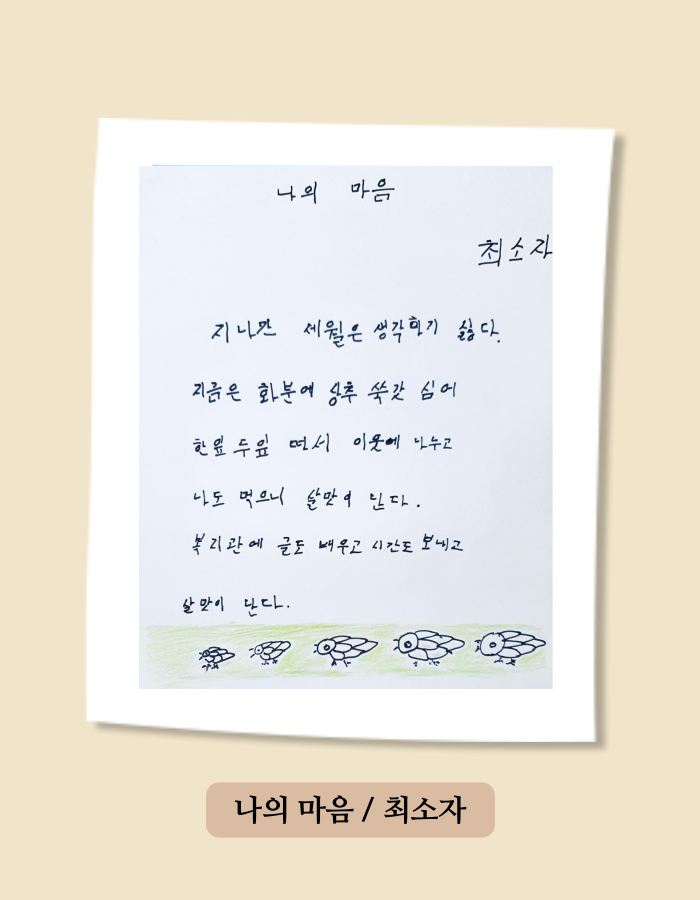 나의 마음
최소자
지나간 세월은 생각하기 싫다.
지금은 화분에 상추 쑥갓 심어
한잎 두잎 떠서 이웃에 나누고
나도 먹으니 살맛이 난다.
복리관에 글도 배우고 시간도 보내고
살맛이 난다.
나의 마음 / 최소자